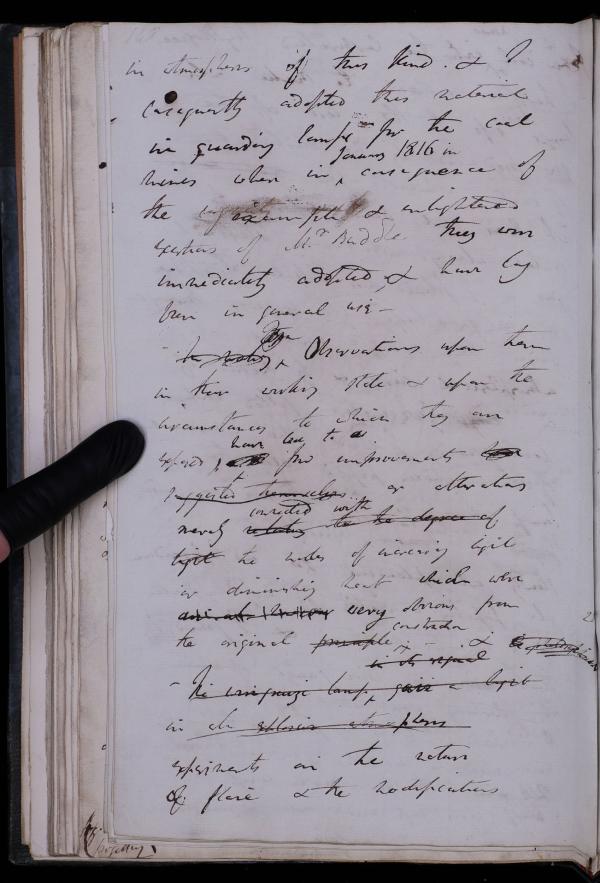 in atmospheres of this kind. & I
consequently adopted this material
in guarding lamps for the coal
January 1816 in
mines when in consequence of
the & enlightened
exertions of Mr. Buddle. they were
immediately adopted, & have long
been in general use –
Observations upon them
in their working state & upon the
circumstances to which they are
have led to a
exposed few improvements
suggested themselves or alterations
connected with
merely relating to the degree of
light the modes of increasing light
or diminishing heat which were
very obvious from
construction
the original principle &
in its original
– The wire gauze lamp, gave a light
in an explosive atmosphere
experiments on the nature
of flame & the modifications